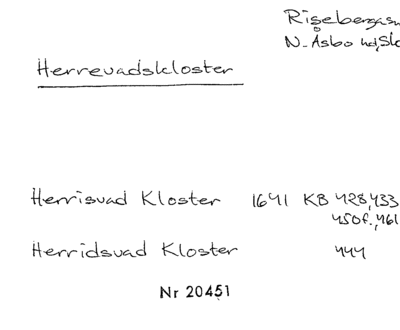 Risebergas
N. Åsbo hd, Sk
Herrevadskloster
Herrisvad Kloster 1641 KB 428, 433
450f., 461
Herridsvad Kloster 444
Nr 20451